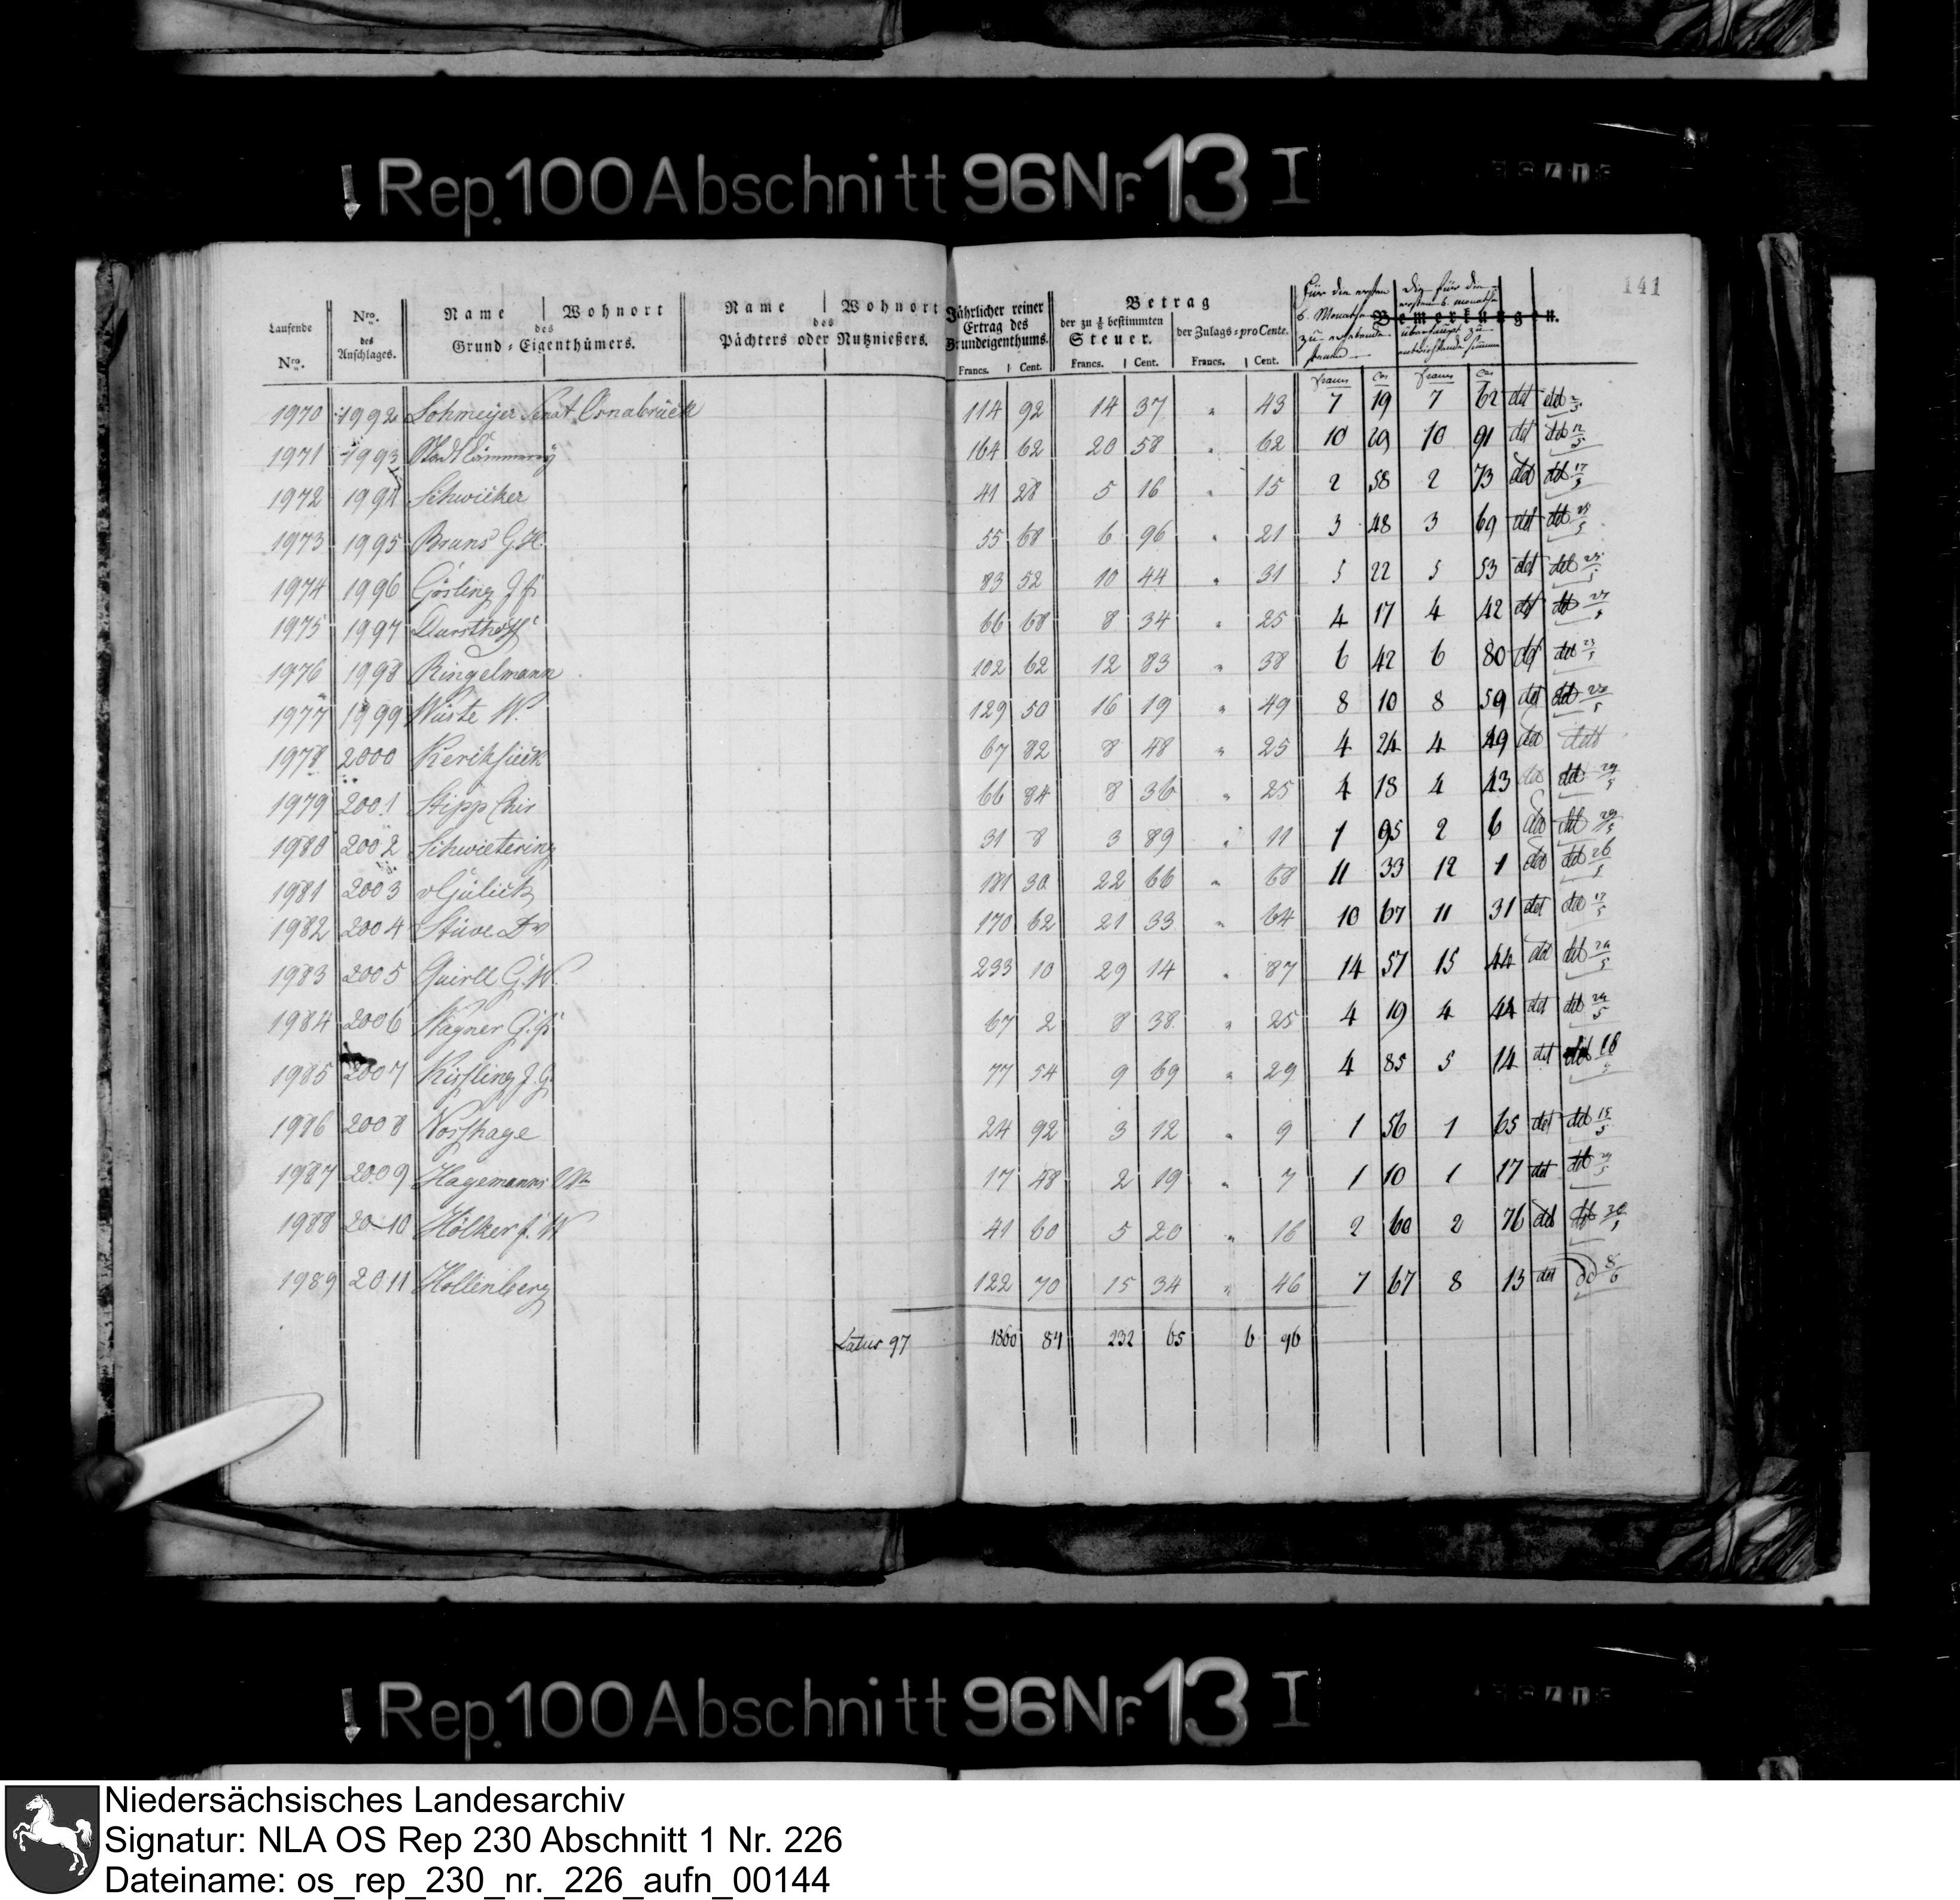 Rep. 100 Abschnitt 96 Nr. 13 I
141
Laufende Nro.
Nro. des Anschlages.
Name Wohnort
des
Grund-Eigenthümers.
Name Wohnort
des
Pächters oder Nutznießers.
Jährlicher reiner Ertrag des Grundeigenthums.
Francs. Cent.
Betrag
der zu 1/8 bestimmten Steuer.
Francs. Cent.
der Zulags-pro Cente.
Francs. Cent.
Bemerkungen.
Für die ersten 6. Monathe zu erhebende
Die für die ersten 6. Monathe überhaupt zu entrichtende Summe
Francs Cs Francs Cs
1970 1992 Lohmeijer Senat. Osnabrück 114 92 14 37 " 43 7 19 7 62 det det
1971 1993 Stadt Cämmerey 164 62 20 58 " 62 10 29 10 91 det det 12/5
1972 1994 Schwicker 41 28 5 16 " 15 2 58 2 73 det det 17/5
1973 1995 Bruns G. H. 55 68 6 96 " 21 3 48 3 69 det det 25/5
1974 1996 Gösling J. F. 83 52 10 44 " 31 5 22 5 53 det det 25/5
1975 1997 Dursthoff 66 68 8 34 " 25 4 17 4 42 det det
1976 1998 Ringelmann 102 62 12 83 " 38 6 42 6 80 det det 23/5
1977 1999 Wüste W. 129 50 16 19 " 49 8 10 8 59 det det
1978 2000 67 82 8 48 " 25 4 24 4 49 det dett
1979 2001 Stipp Chir 66 84 8 36 " 25 4 18 4 43 det det 29/5
1980 2002 Schwietering 31 8 3 89 " 11 1 95 2 6 det det 29/5
1981 2003 v Gülick 181 30 22 66 " 68 11 33 12 1 det det 26/5
1982 2004 Stüve Dr 170 62 21 33 " 64 10 67 11 31 det det 17/5
1983 2005 Quirll G. W. 233 10 29 14 " 87 14 57 15 44 det det 24/5
1984 2006 Wagner G. F. 67 2 8 38 " 25 4 19 4 44 det det 24/5
1985 2007 Kisling J. G. 77 54 9 69 " 29 4 85 5 14 det det 18/5
1986 2008 Nosthage 24 92 3 12 " 9 1 56 1 65 det det 15/5
1987 2009 Hagemanns We 17 48 2 19 " 7 1 10 1 17 det det 29/5
1988 2010 Hölker f. W 41 60 5 20 " 16 2 60 2 76 det det 30/5
1989 2011 Hollenberg 122 70 15 34 " 46 7 67 8 13 det det 8/6
Latus 97 1860 84 232 65 6 96
Rep. 100 Abschnitt 96 Nr. 13 I
Niedersächsisches Landesarchiv
Signatur: NLA OS Rep 230 Abschnitt 1 Nr. 226
Dateiname: os_rep_230_nr._226_aufn_00144